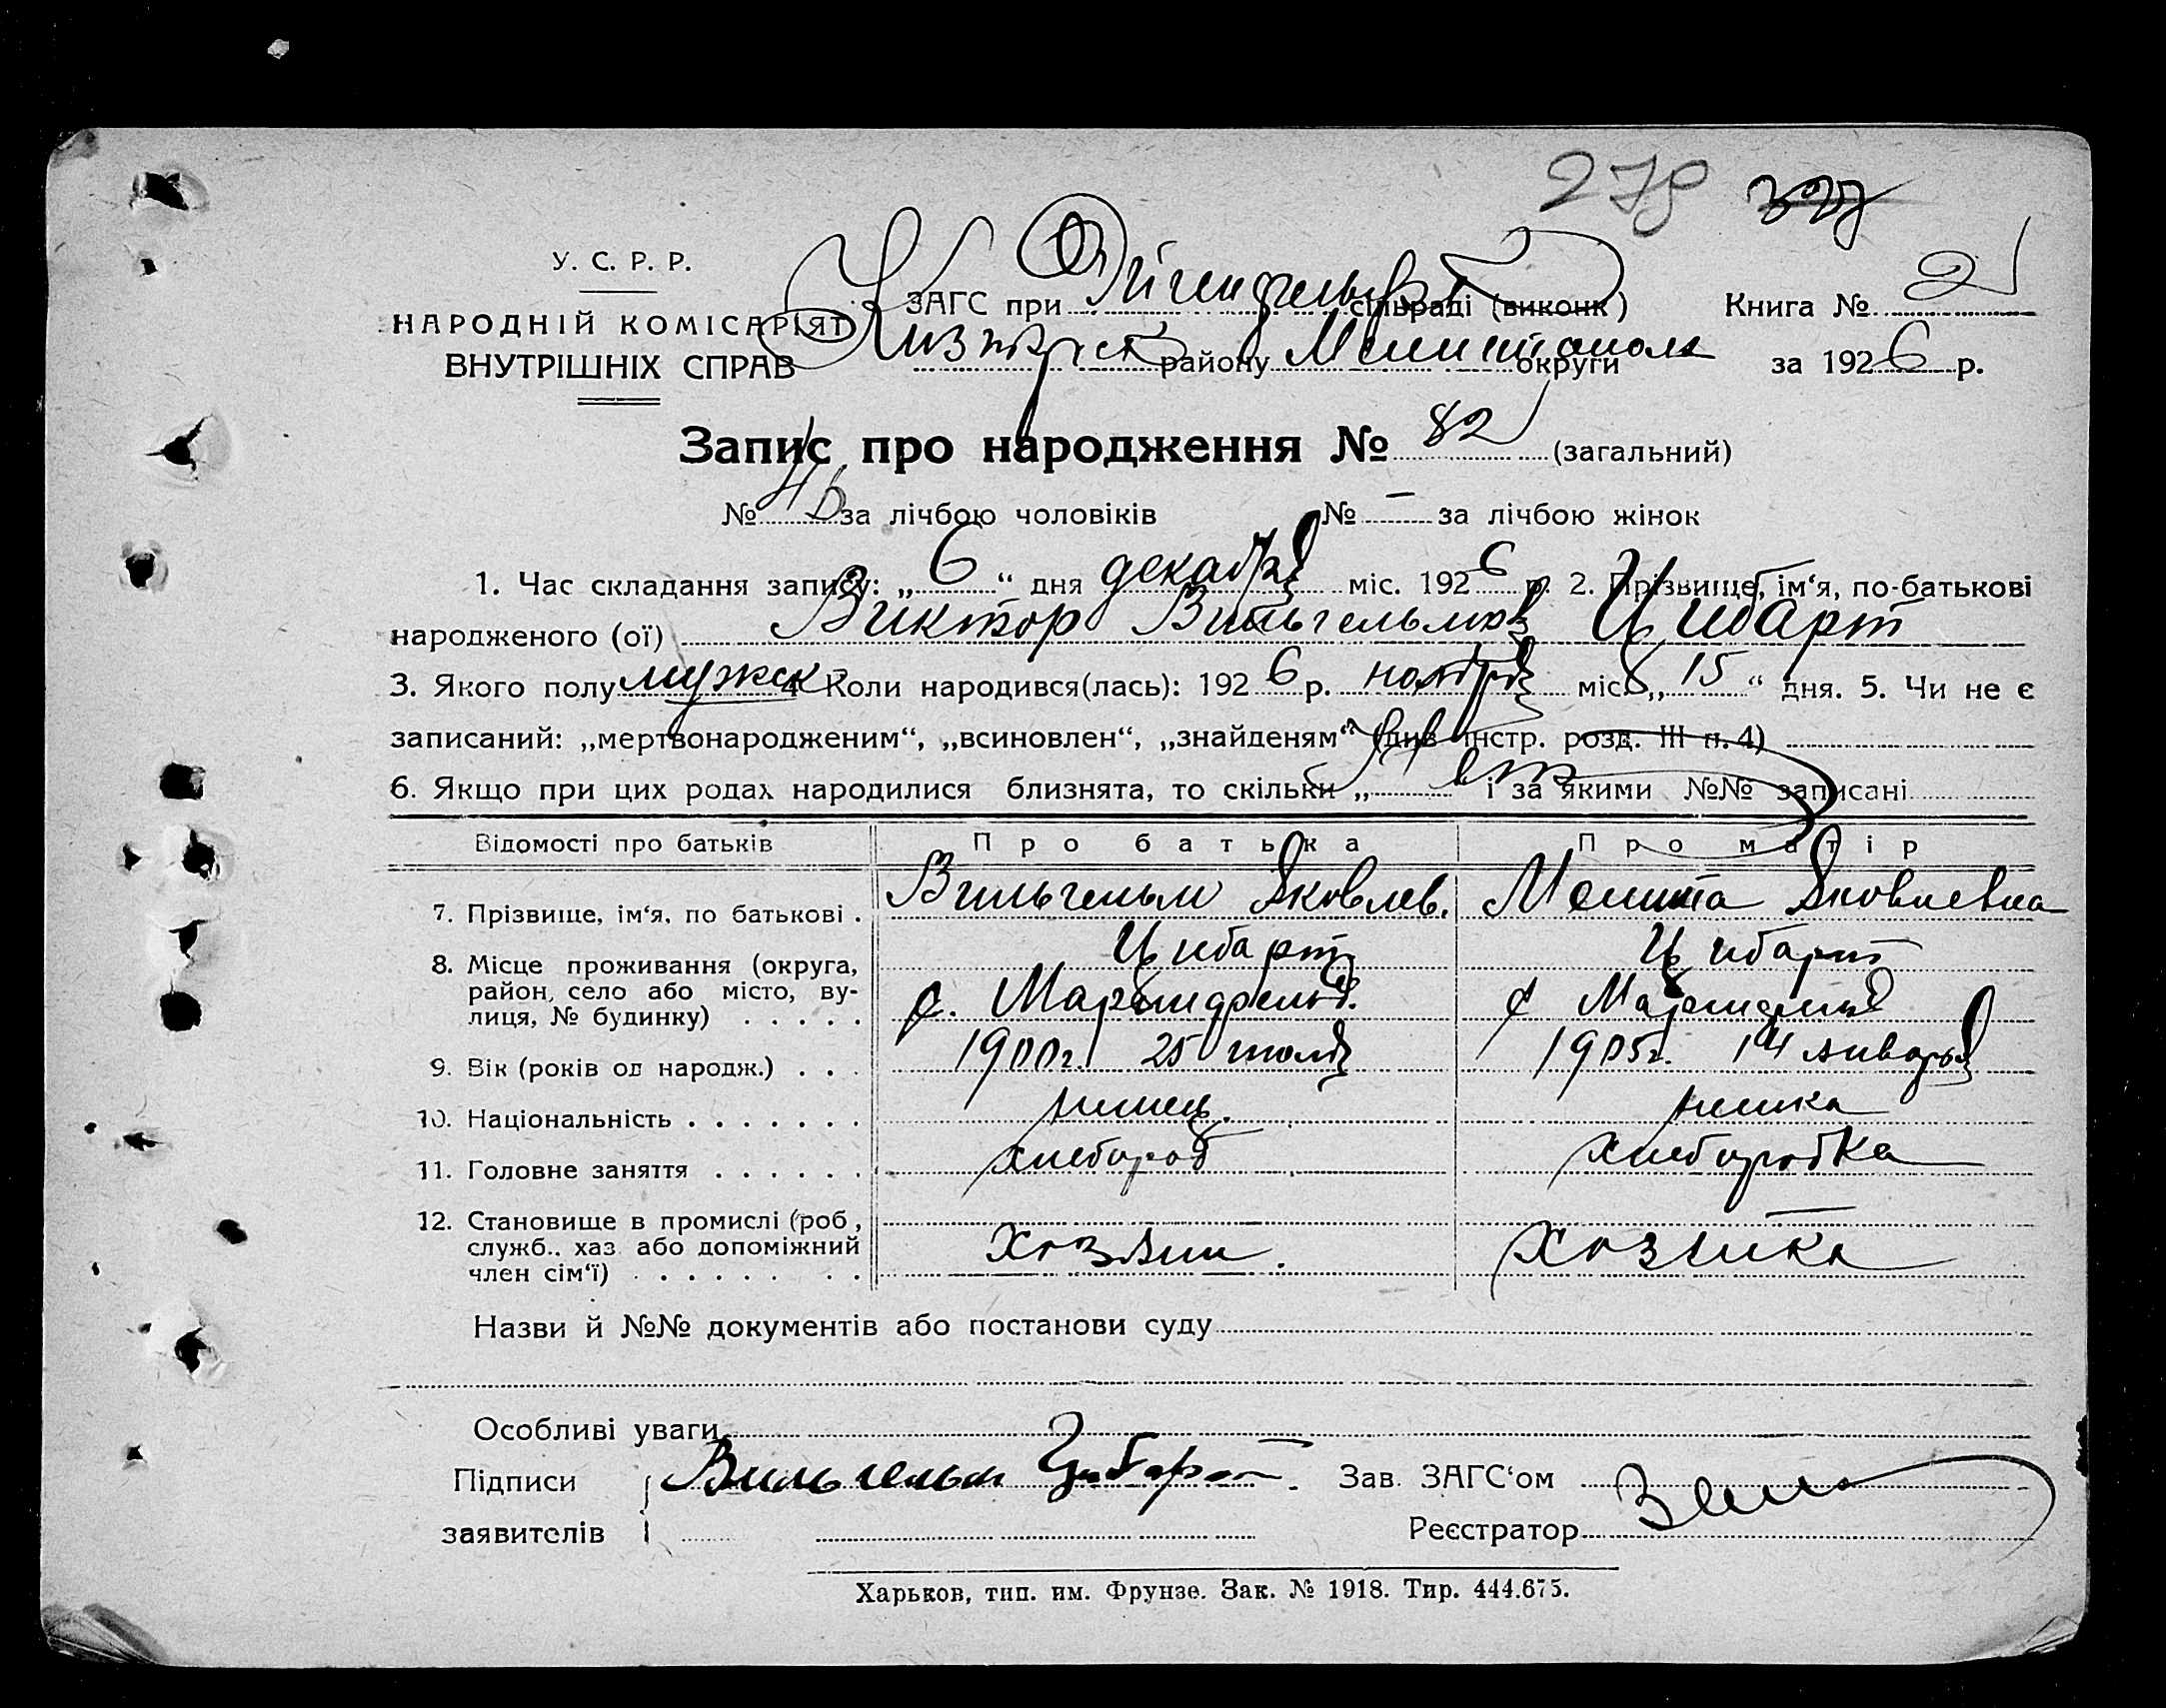 278 327
У. С. Р. Р.
НАРОДНІЙ КОМІСАРІЯТ
ВНУТРІШНІХ СПРАВ
ЗАГС при Эйгенфельд сільраді (виконк) Книга № 2
району Мелитополь округи за 1926 р.
Запис про народження № 82 (загальний)
№ за лічбою чоловіків № – за лічбою жінок
1. Час складання запису: „6“ дня декабря міс. 1926 р. 2. Прізвище, ім‘я, по-батькові
народженого (ої) Виктор Вильгельмов Цибарт
3. Якого полу мужск 4 Коли народився(лась): 1926 р. ноября міс. „15“ дня. 5. Чи не є
записаний: „мертвонародженим“, „всиновлен“, „знайденям“ (див інстр. розд. III п. 4)
6. Якщо при цих родах народилися близнята, то скільки „ “ і за якими №№ записані
нет
Відомості про батьків Про батька Про матір
7. Прізвище, ім‘я, по батькові . Вильгельм Яковлев. Мелита Яковлевна
Цибарт Цибарт
8. Місце проживання (округа, район, село або місто, вулиця, № будинку) . . . . . с. Марienфельд. с
9. Вік (років од народж.) . . . 1900г. 25 июля 1905г. 14 января
10. Національність . . . . . . . немец. немка
11. Головне заняття . . . . . . хлебороб хлеборобка
12. Становище в промислі (роб, служб.. хаз або допоміжний член сім‘ї) . . . . . . . . хозяин. хозяйка
Назви й №№ документів або постанови суду
Особливі уваги
Підписи Вильгельм Цибарт. Зав. ЗАГС‘ом
заявителів Реєстратор
Харьков, тип. им. Фрунзе. Зак. № 1918. Тир. 444.675.